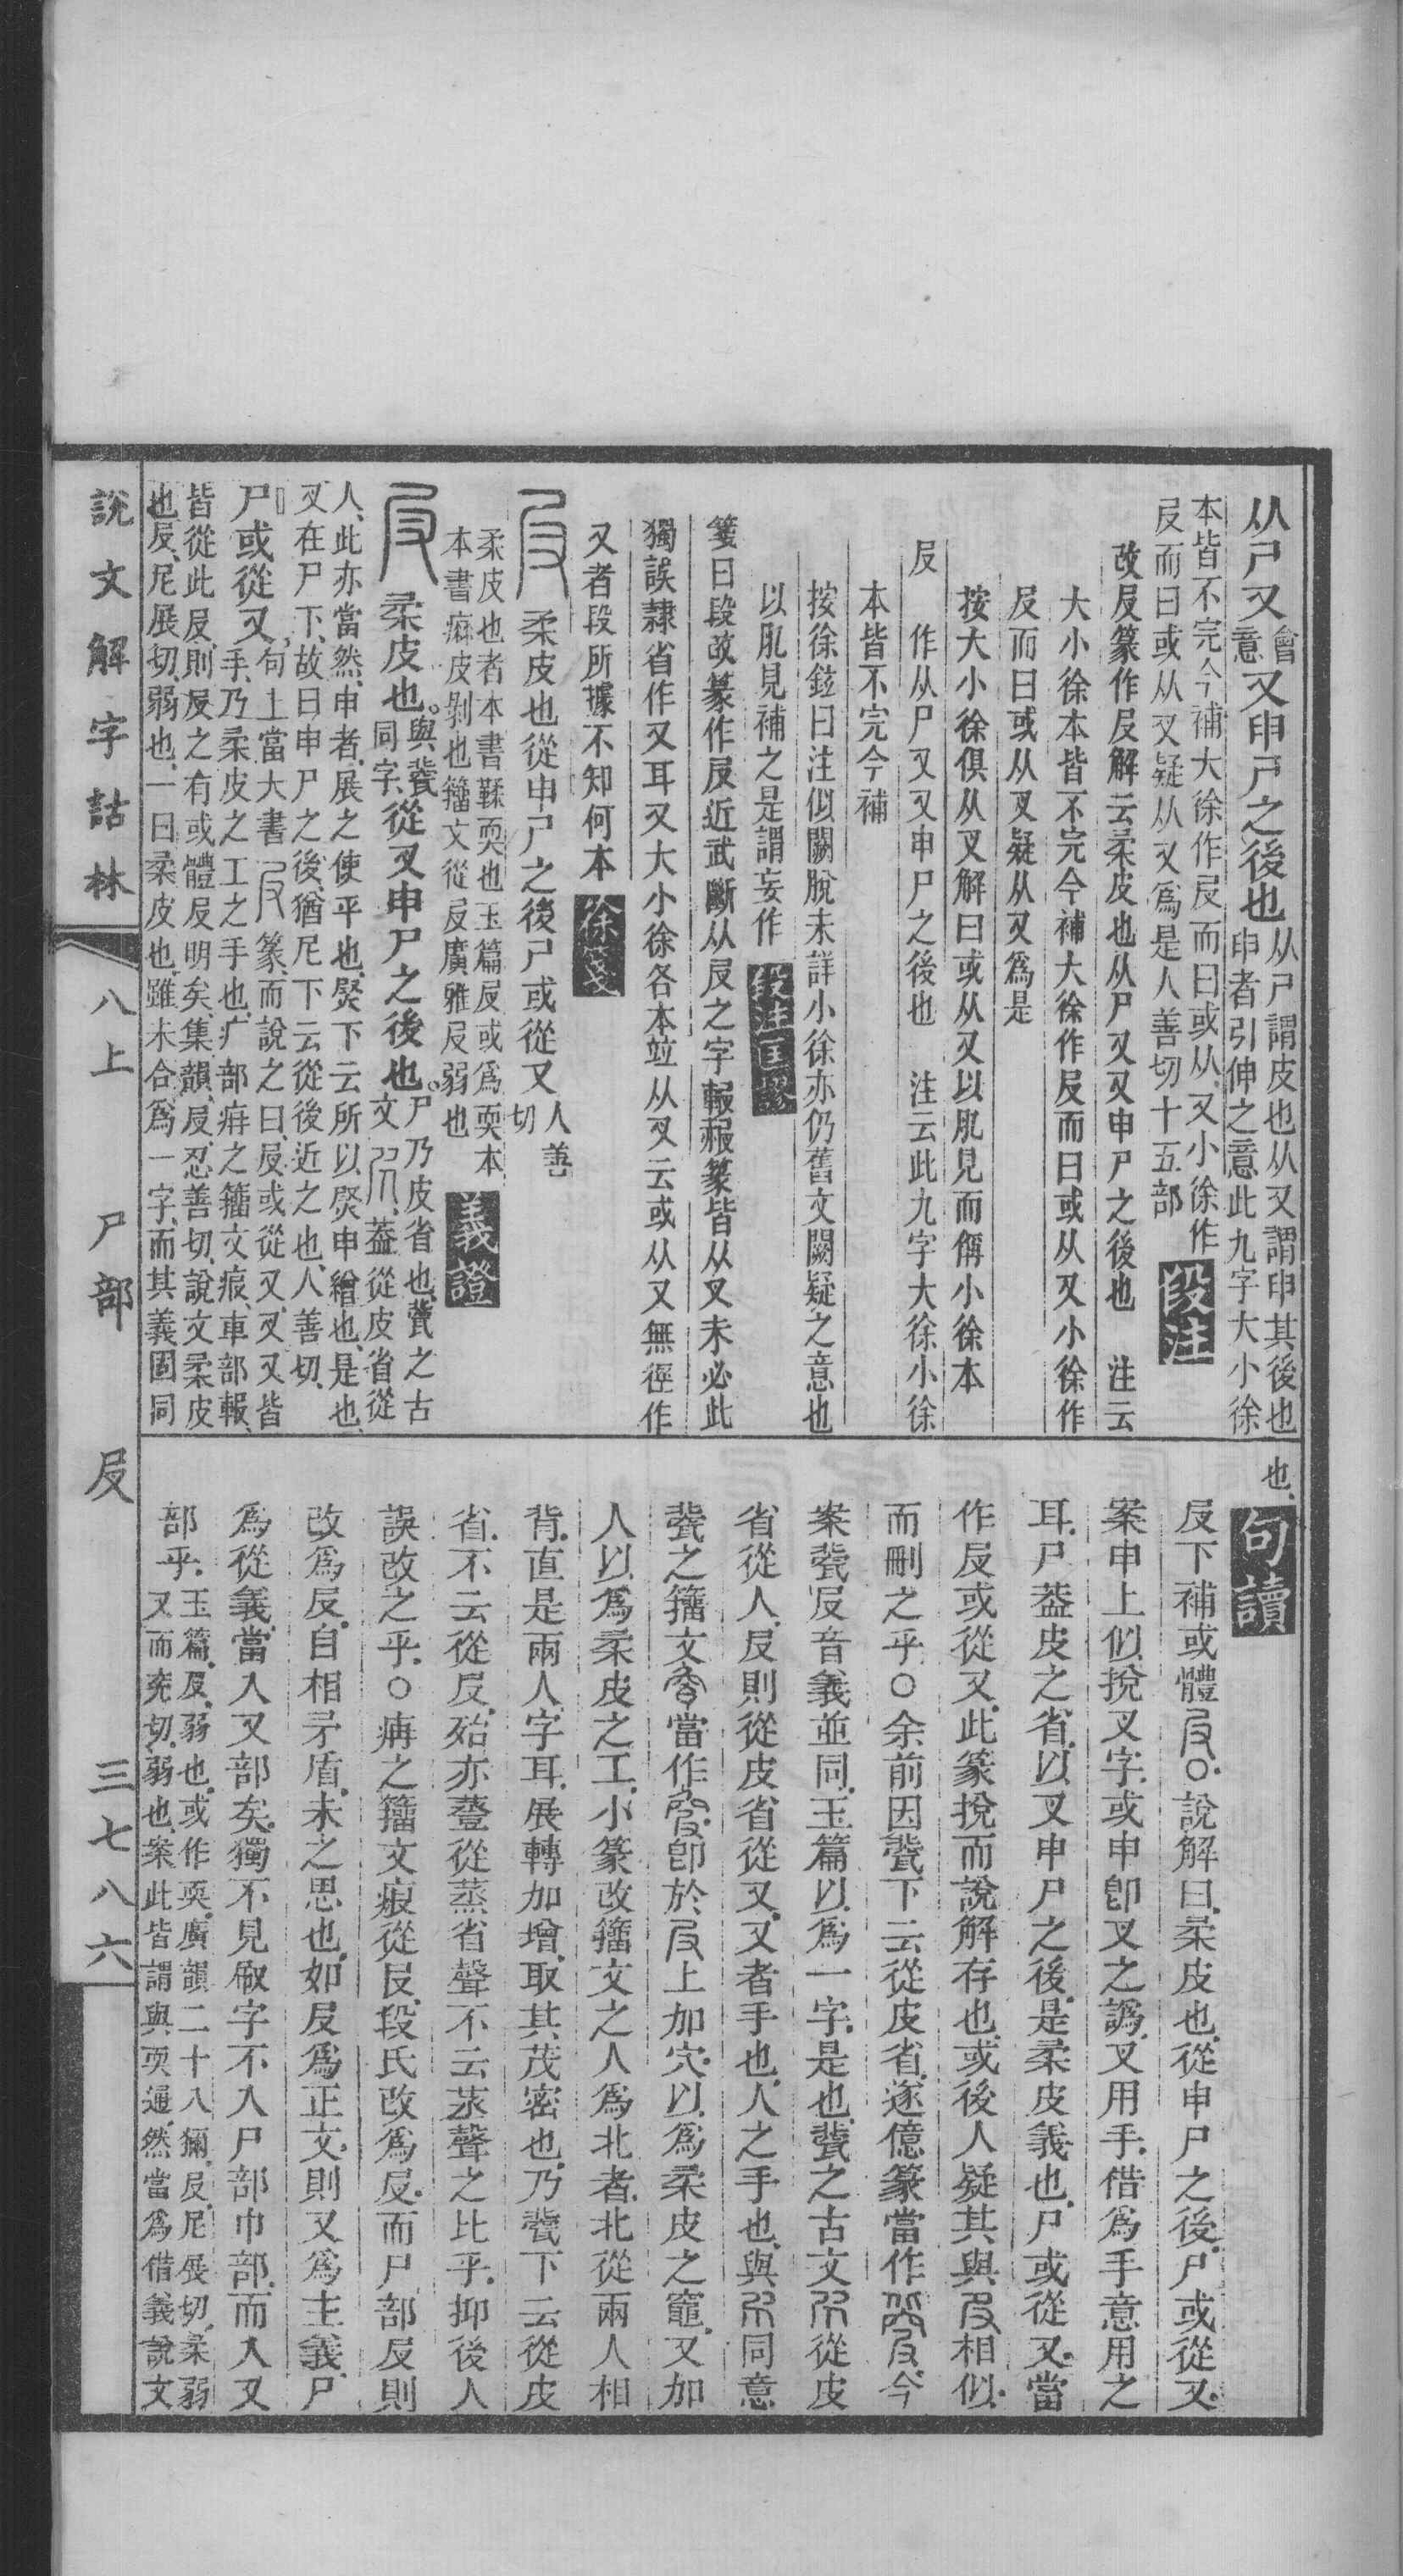 从尸又會意又申尸之後也从尸謂皮也从又謂申其後也
申者引伸之意此九字大小徐
本皆不完今補大徐作㞋而曰或从又小徐作
㞋而曰或从㕚疑从又爲是人善切十五部 段注
改㞋篆作㞋解云柔皮也从尸又又申尸之後也 注云
大小徐本皆不完今補大徐作㞋而曰或从又小徐作
㞋而曰或从㕚疑从又爲是
按大小徐俱从㕚解曰或从又以肊見而偁小徐本
㞋 作从尸又又申尸之後也 注云此九字大徐小徐
本皆不完今補
按徐鉉曰注似闕脫未詳小徐亦仍舊文闕疑之意也
以肊見補之是謂妄作 段注匡謬
箋曰段改篆作㞋近武斷从㞋之字報赧篆皆从㕚未必此
獨誤隷省作又耳又大小徐各本竝从㕚云或从又無徑作
又者段所據不知何本 徐箋
柔皮也從申尸之後尸或從又人善切
柔皮也者本書鞣耎也玉篇㞋或爲耎本
本書㾧皮剝也籀文從㞋廣雅㞋弱也 義證
柔皮也。與㼱同字。從㕚申尸之後也。尸乃皮省也㼱之古
文蓋從皮省從
人、此亦當然、申者、展之使平也、㷉下云所以㷉申繒也、是也、
㕚在尸下、故曰申尸之後、猶尼下云從後近之也、人善切、
尸或從又、句上當大書篆、而說之曰、㞋或從又、㕚又皆
手、乃柔皮之工之手也、疒部㾧之籀文㾕、車部報、
皆從此㞋、則㞋之有或體㞋明矣、集韻、㞋、忍善切、說文柔皮
也、㞋、尼展切、弱也、一曰柔皮也、雖未合爲一字、而其義固同
也、 句讀
㞋下補或體。○說解曰、柔皮也、從申尸之後、尸或從又、
案申上似挩㕚字、或申卽㕚之譌、㕚用手、借爲手意用之
耳、尸葢皮之省、以㕚申尸之後、是柔皮義也、尸或從又、當
作㞋或從又、此篆挩而說解存也、或後人疑其與相似、
而刪之乎、○余前因㼱下云從皮省、遂億篆當作今
案㼱㞋音義並同、玉篇以爲一字、是也、㼱之古文從皮
省從人、㞋則從皮省從又、又者手也、人之手也、與同意
㼱之籀文當作卽於上加穴、以爲柔皮之竈、又加
人以爲柔皮之工、小篆改籀文之人爲北者、北從兩人相
背、直是兩人字耳、展轉加增、取其茂密也、乃㼱下云從皮
省、不云從㞋、殆亦虀從蒸省聲不云烝聲之比乎、抑後人
誤改之乎、○㾧之籀文㾕從㞋、段氏改爲㞋、而尸部㞋則
改爲㞋、自相矛盾、未之思也、如㞋爲正文、則又爲主義、尸
爲從義、當入又部矣、獨不見㕞字不入尸部巾部、而入又
部乎、玉篇、㞋、弱也、或作耎、廣韻二十八獮、㞋、尼展切、柔弱
又而兖切、弱也、案此皆謂與耎通、然當爲借義說文
說文解字詁林 八上 尸部 㞋 三七八六